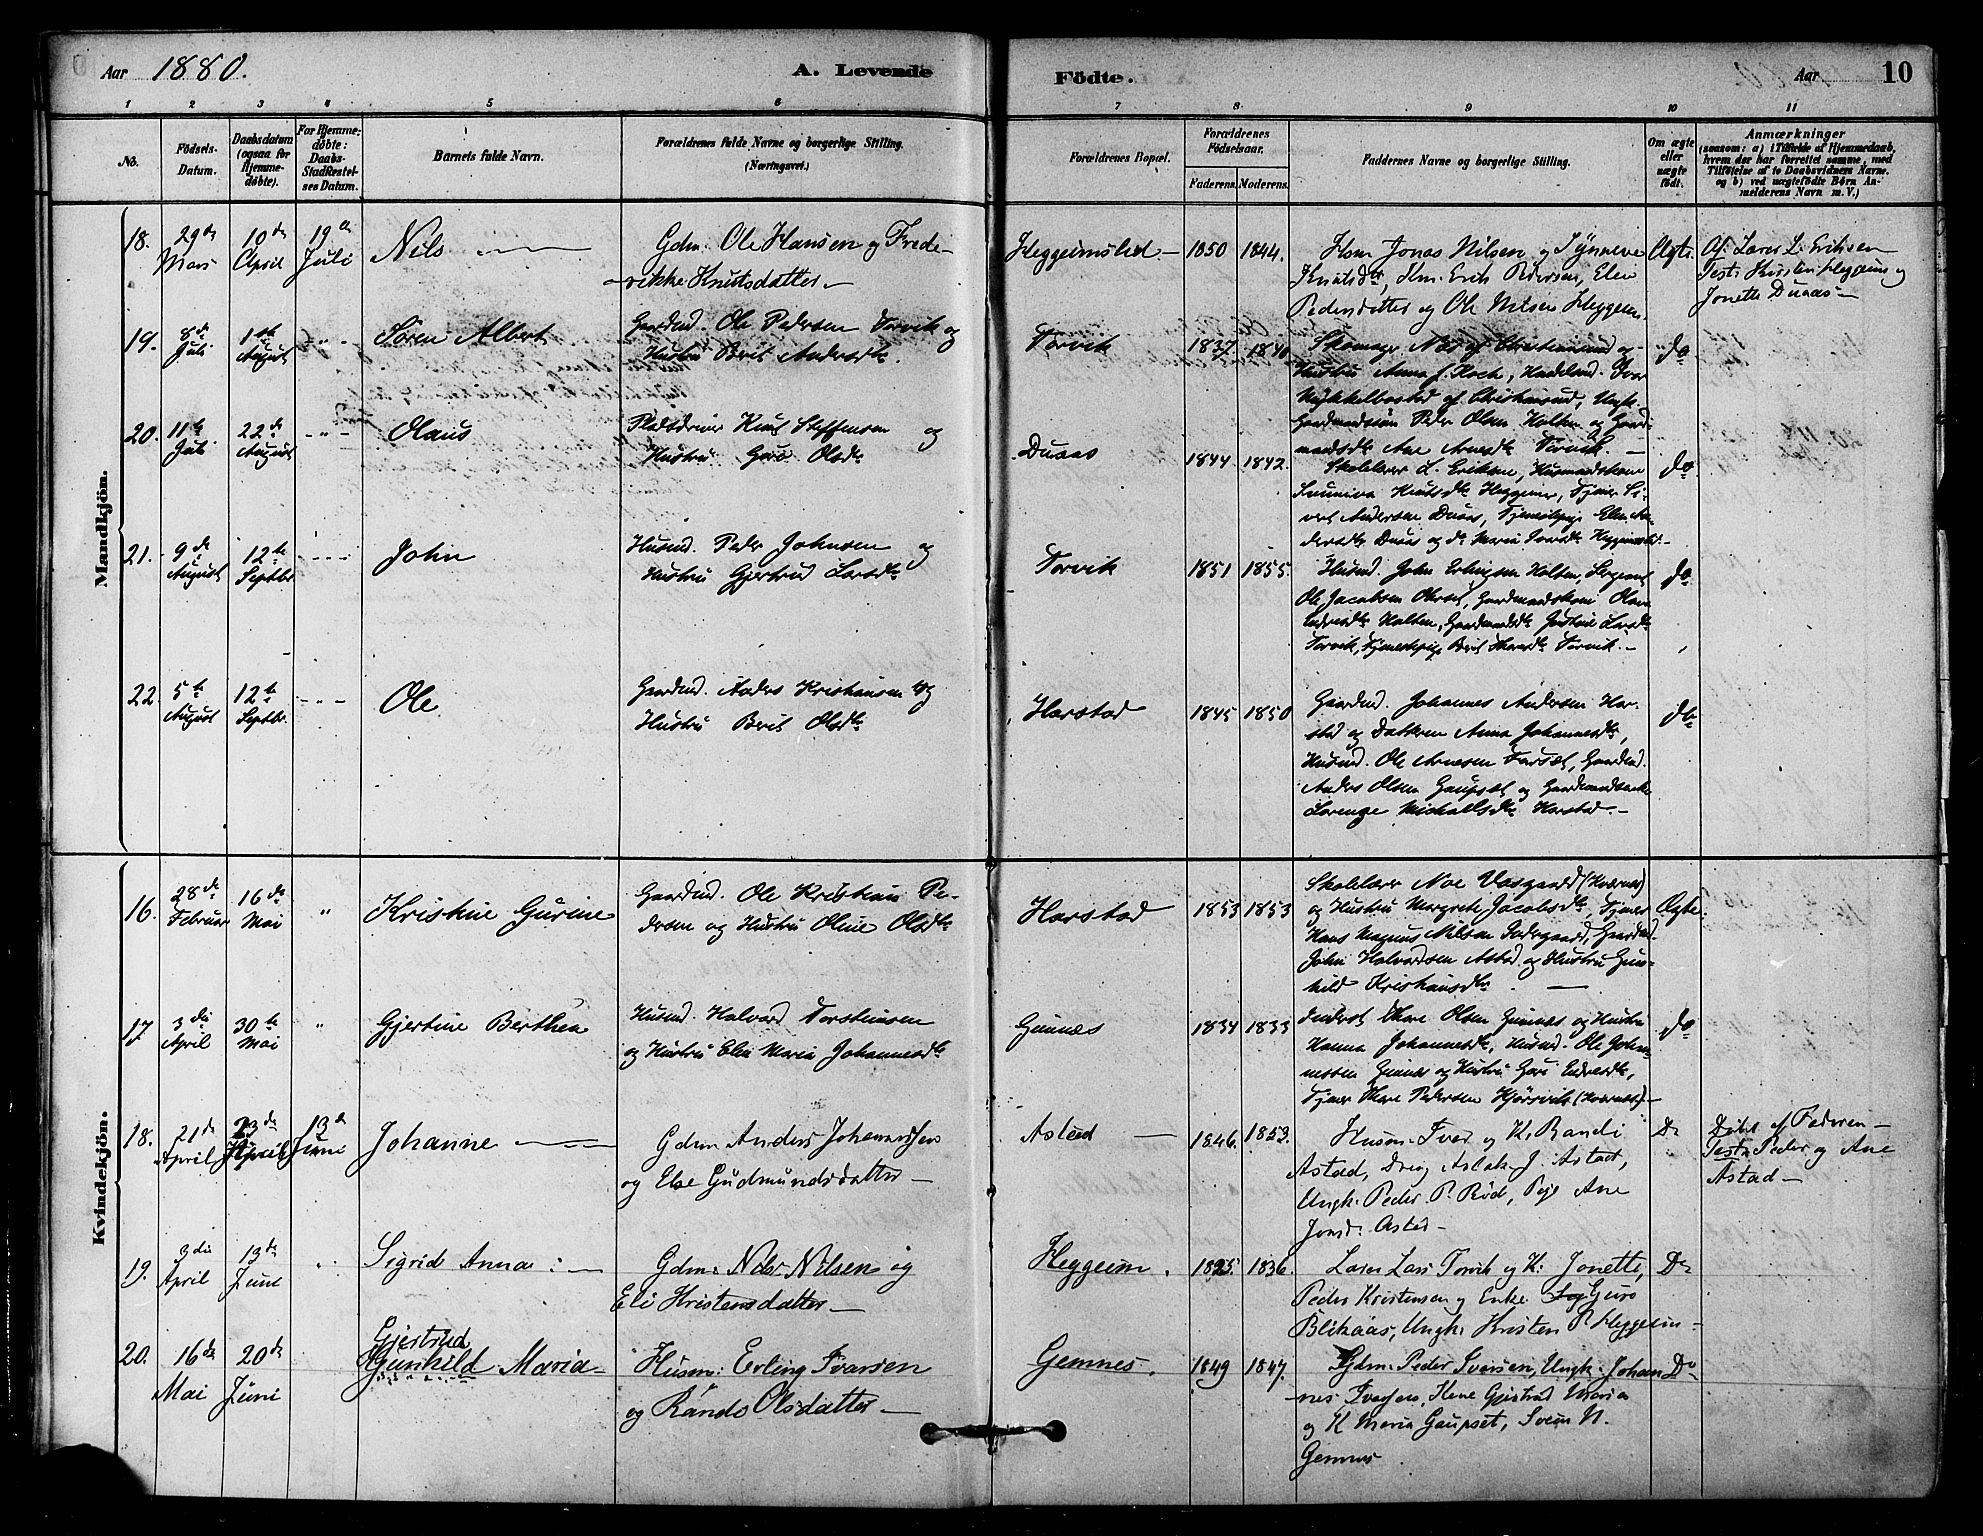 Aar 1880. A. Levende Födte. Aar 10
1 2 3 4 5 6 7 8 9 10 11
No.
Födsels-
Datum.
Daabsdatum
(ogsaa for
Hjemme-
döbte).
For Hjemme-
döbte:
Daabs-
Stadfæstel-
ses Datum.
Barnets fulde Navn.
Forældrenes fulde Navne og borgerlige Stilling.
(Næringsvei.)
Forældrenes Bopæl.
Forældrenes
Födselsaar.
Faderens. Moderens.
Faddernes Navne og borgerlige Stilling.
Om ægte
eller
uægte
födt.
Anmærkninger
(saasom: a) i Tilfælde af Hjemmedaab,
hvem der har forrettet samme, med
Tilföielse af to Daabsvidners Navne.
og b) ved uægtefödte Börn An-
melderens Navn m. V.)
Mandkjön.
18. 29de Mars 10de April 19de Juli Nils
Gdm. Ole Hansen og Frede-
rikke Knutsdatter
Heggeimsled 1850 1844.
Hsm Jonas Nilsen og Synneve
Knutsdtr, Hm. Erik Pedersen, Elen
Pedersdatter og Ole Nilsen Heggeim
Ægte.
Af Lærer L. Eriksen
Test: Kristen Heggeim og
Jonette Duaas
19. 8de Juli 1ste August " Søren Albert
Gaardmd. Ole Pedersen Torvik og
Hustru Berit Andersdtr
Torvik 1837 1840
Skomager Næs af Christiansund og
Hustru Anna f. Koch, Ivar
Mykkelbostad af Christiansund, Ungk.
Gaardmandssøn Peder Olsen Holten og Gaard-
mandsdtr Ane Arnesdtr Torvik.
do
20. 11te Juli 22de August " Olaus
Pladsdriver Knut Steffensen og
Hustru Guro Olsdtr
Duaas 1844 1842.
Skolelærer L. Eriksen, Husmandskone
Sunniva Knutsdtr Heggeim, Tjener Si-
vert Andersen Duaas, Tjenestepige Elen An-
dersdtr Duaas og do Maria Heggeimsled.
do
21. 9de August 12te Septbr. " John
Husmd. Peder Johnsen og
Hustru Gjertrud Larsdtr
Torvik 1851 1855.
Husmd. John Erlingsen Holten, Sergeant
Ole Jacobsen, Gaardmandskone
Holten, Gaardmandsdtr Larsdtr
Torvik, Tjenestepige Berit Torvik.
do
22. 5te August 12te Septbr. " Ole
Gaardmd. Anders Kristiansen og
Hustru Berit Olsdtr
Harstad 1845 1850
Gaardmd. Johannes Andersen Har-
stad og Datteren Anna Johannesdtr,
Husmd. Ole Arnesen Farset, Gaardmd.
Anders Olsen Gaupset og Gaardmandsenke
Lorense Michallsdtr Harstad.
do
Kvindekjön.
16. 28de Februar 16de Mai " Kristine Gurine
Gaardmd. Ole Kristian Pe-
dersen og Hustru Oline Olsdtr
Harstad 1853 1853
Skolelærer Noe Vaagaard (Kværnæs)
og Hustru Margrete Jacobsdtr, Tjener
Hans Magnus Nilsen, Gaardmd.
John Halvardsen Astad og Hustru Gun-
hild Kristiansdtr.
Ægte:
17. 3die April 30te Mai " Gjertine Berthea
Husmd. Halvard Torstensen
og Hustru Elen Maria Johannesdtr
Gimnæs 1834 1833
Inderst Iver Olsen Gimnæs og Hustru
Hanna Johannesdtr, Husmd. Ole Johan-
nessen Gimnæs og Hustru Guri Endresdtr,
Tjener Iver Pedersen (Kværnæs).
do
18. 21de April 23de April 13de Juni Johanne
Gdm Anders
og Else Gudmundsdatter
Astad 1846. 1853.
Husm. Iver og K. Randi
Astad, Dreng Aslak J. Astad,
Ungk. Peder P. Rød, Pige Ane
Jonsd. Astad
Do
Døbt af Faderen
Test: Peder og Ane
Astad
19. 3die April 13de Juni " Sigrid Anna
Gdm: Nils Nilsen og
Eli Kristensdatter
Heggeim. 1825. 1836.
Lærer Lars Torvik og K: Jonette,
Peder Kristensen og Enke Guro
Blikaas, Ungk: Kristen P. Heggeim
Do
20. 16de Mai 20de Juni
Gjertrud
Gunhild Maria
Husm: Erling Ivarsen
og Rando Olsdatter
Gemnes. 1849 1847.
Gdm: Peder Iversen, Ungk: Johan-
nes Iversen, Gjertrud Maria
og K Maria Gaupset, Svein N.
Gemnes
Do